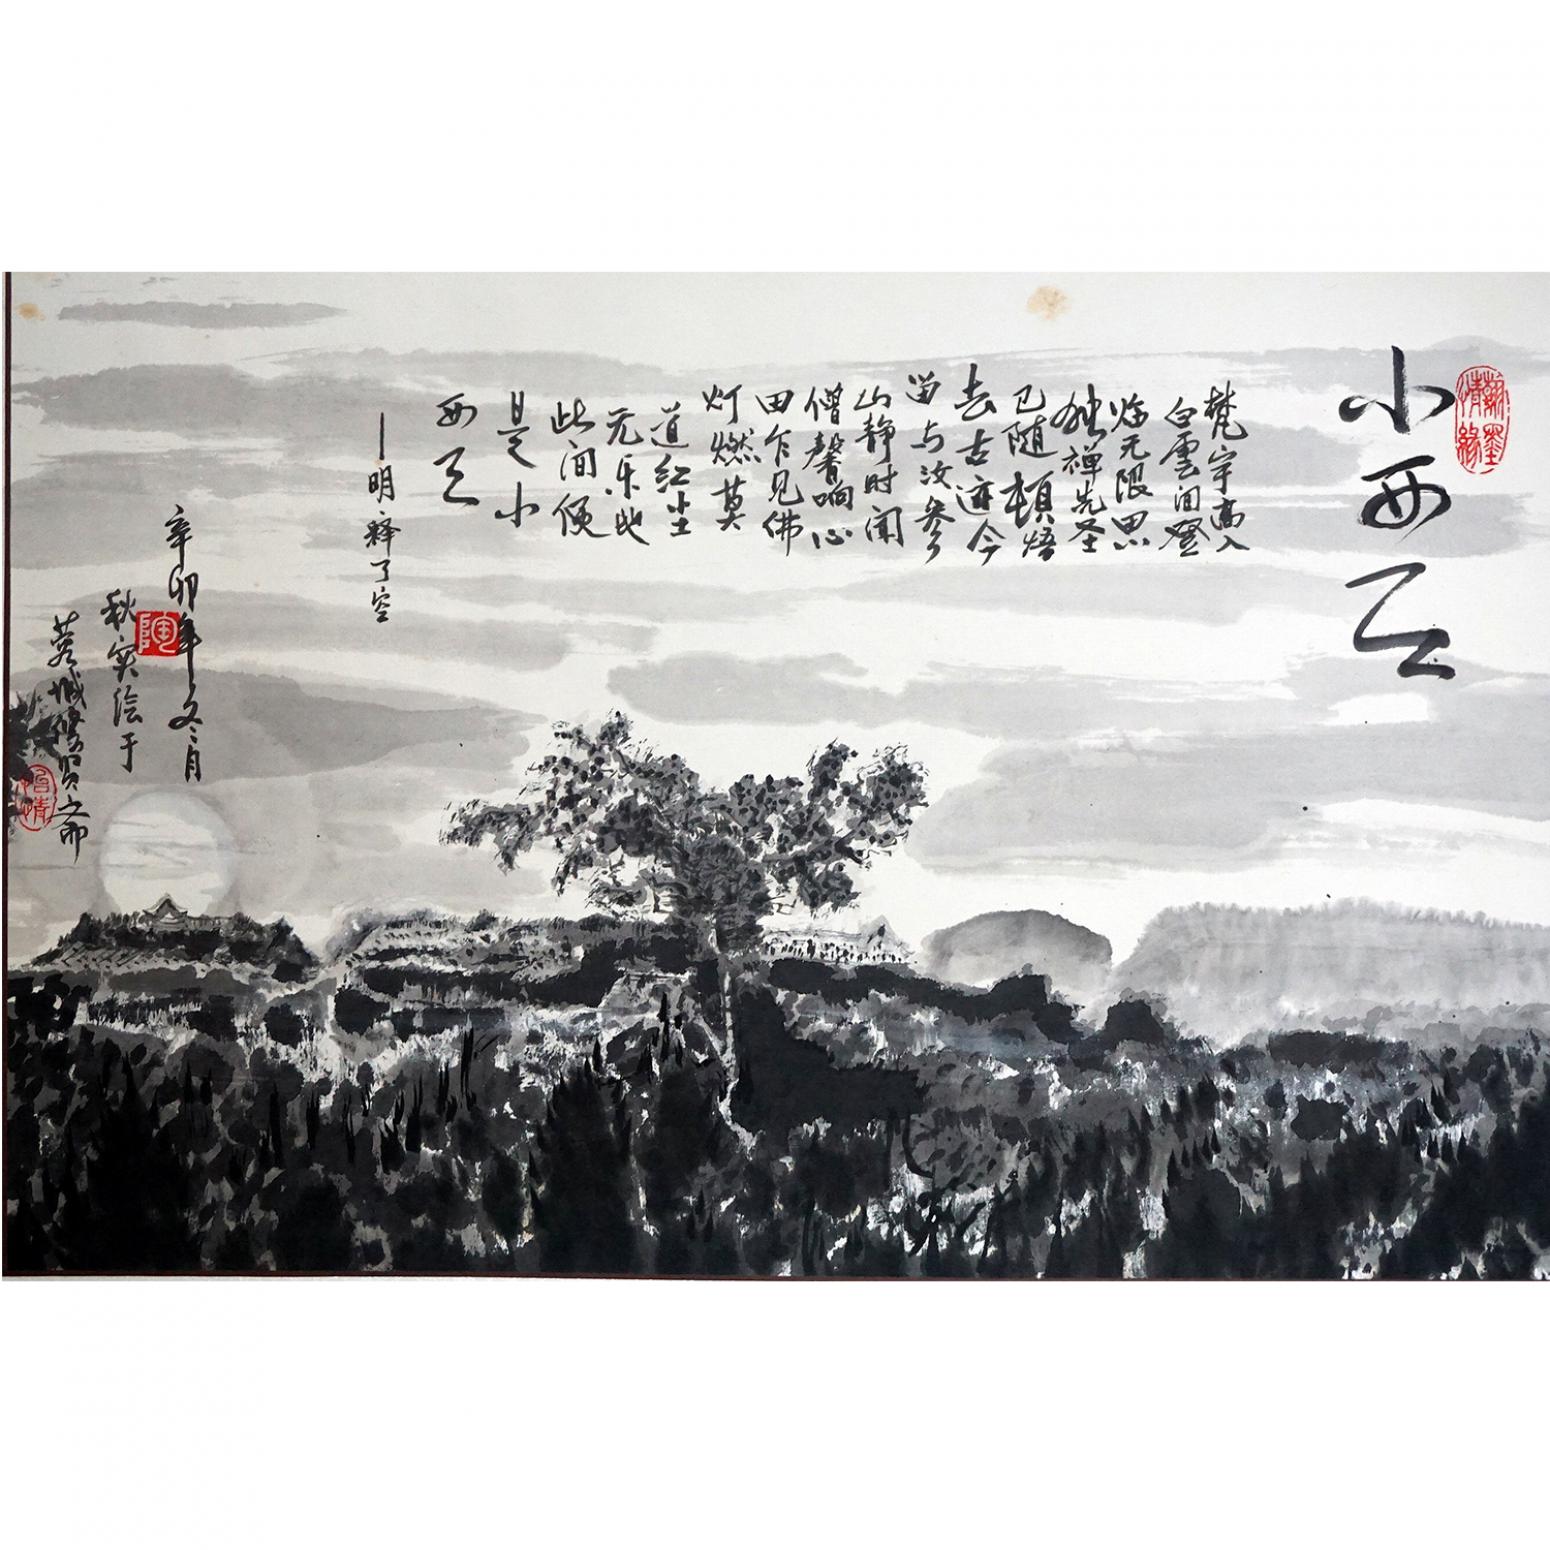 翰墨情缘
小西天
梵宇高入
白雲间登
临无限思
独禅先圣
已随顿悟
去古迹今
留与汝参
山静时闻
僧磬响心
田乍见佛
灯燃莫
道红尘
无乐地
此间便
是小
西天
—明·释了空
辛卯年冬月
陶
秋实绘于
蓉城修贤之斋